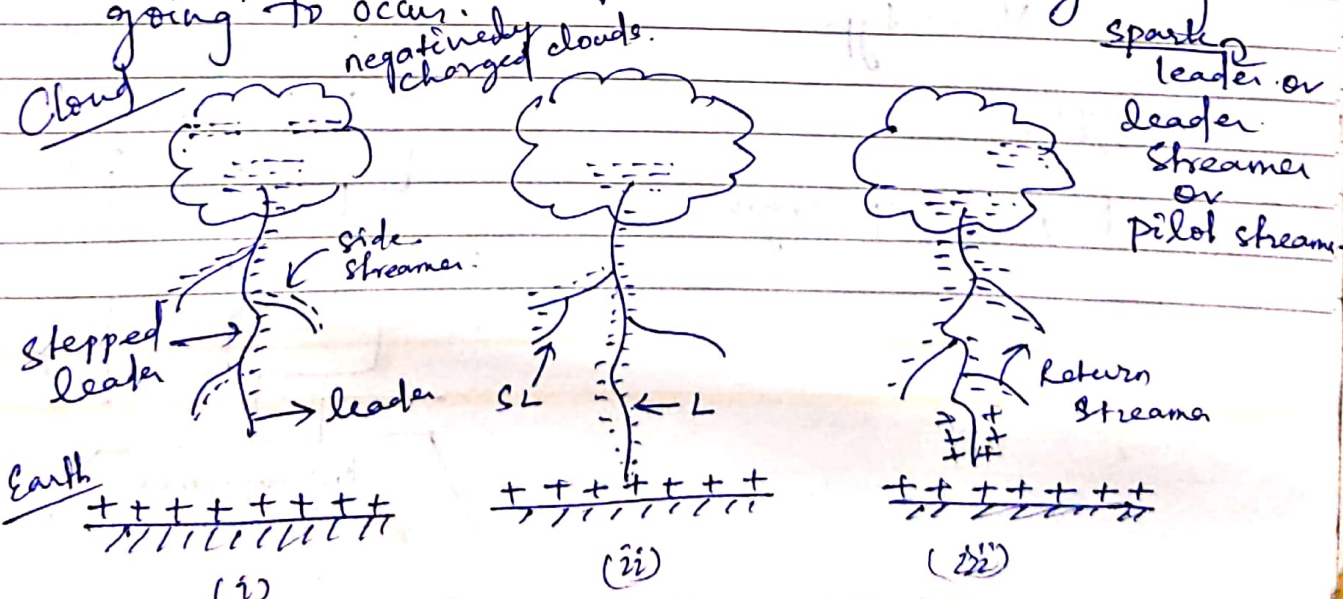 going to occur.
negatively
charged clouds.
Cloud
spark
leader or
leader
streamer
or
pilot streame
side
streamer.
stepped
leader
leader
SL
L
Return
streamer
Earth
+ + + + + + + +
+ + + + + + +
+ + + + + + +
(i)
(ii)
(iii)